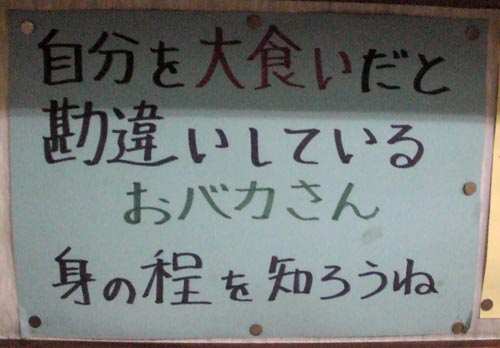 自分を大食いだと
勘違いしている
おバカさん
身の程を知ろうね